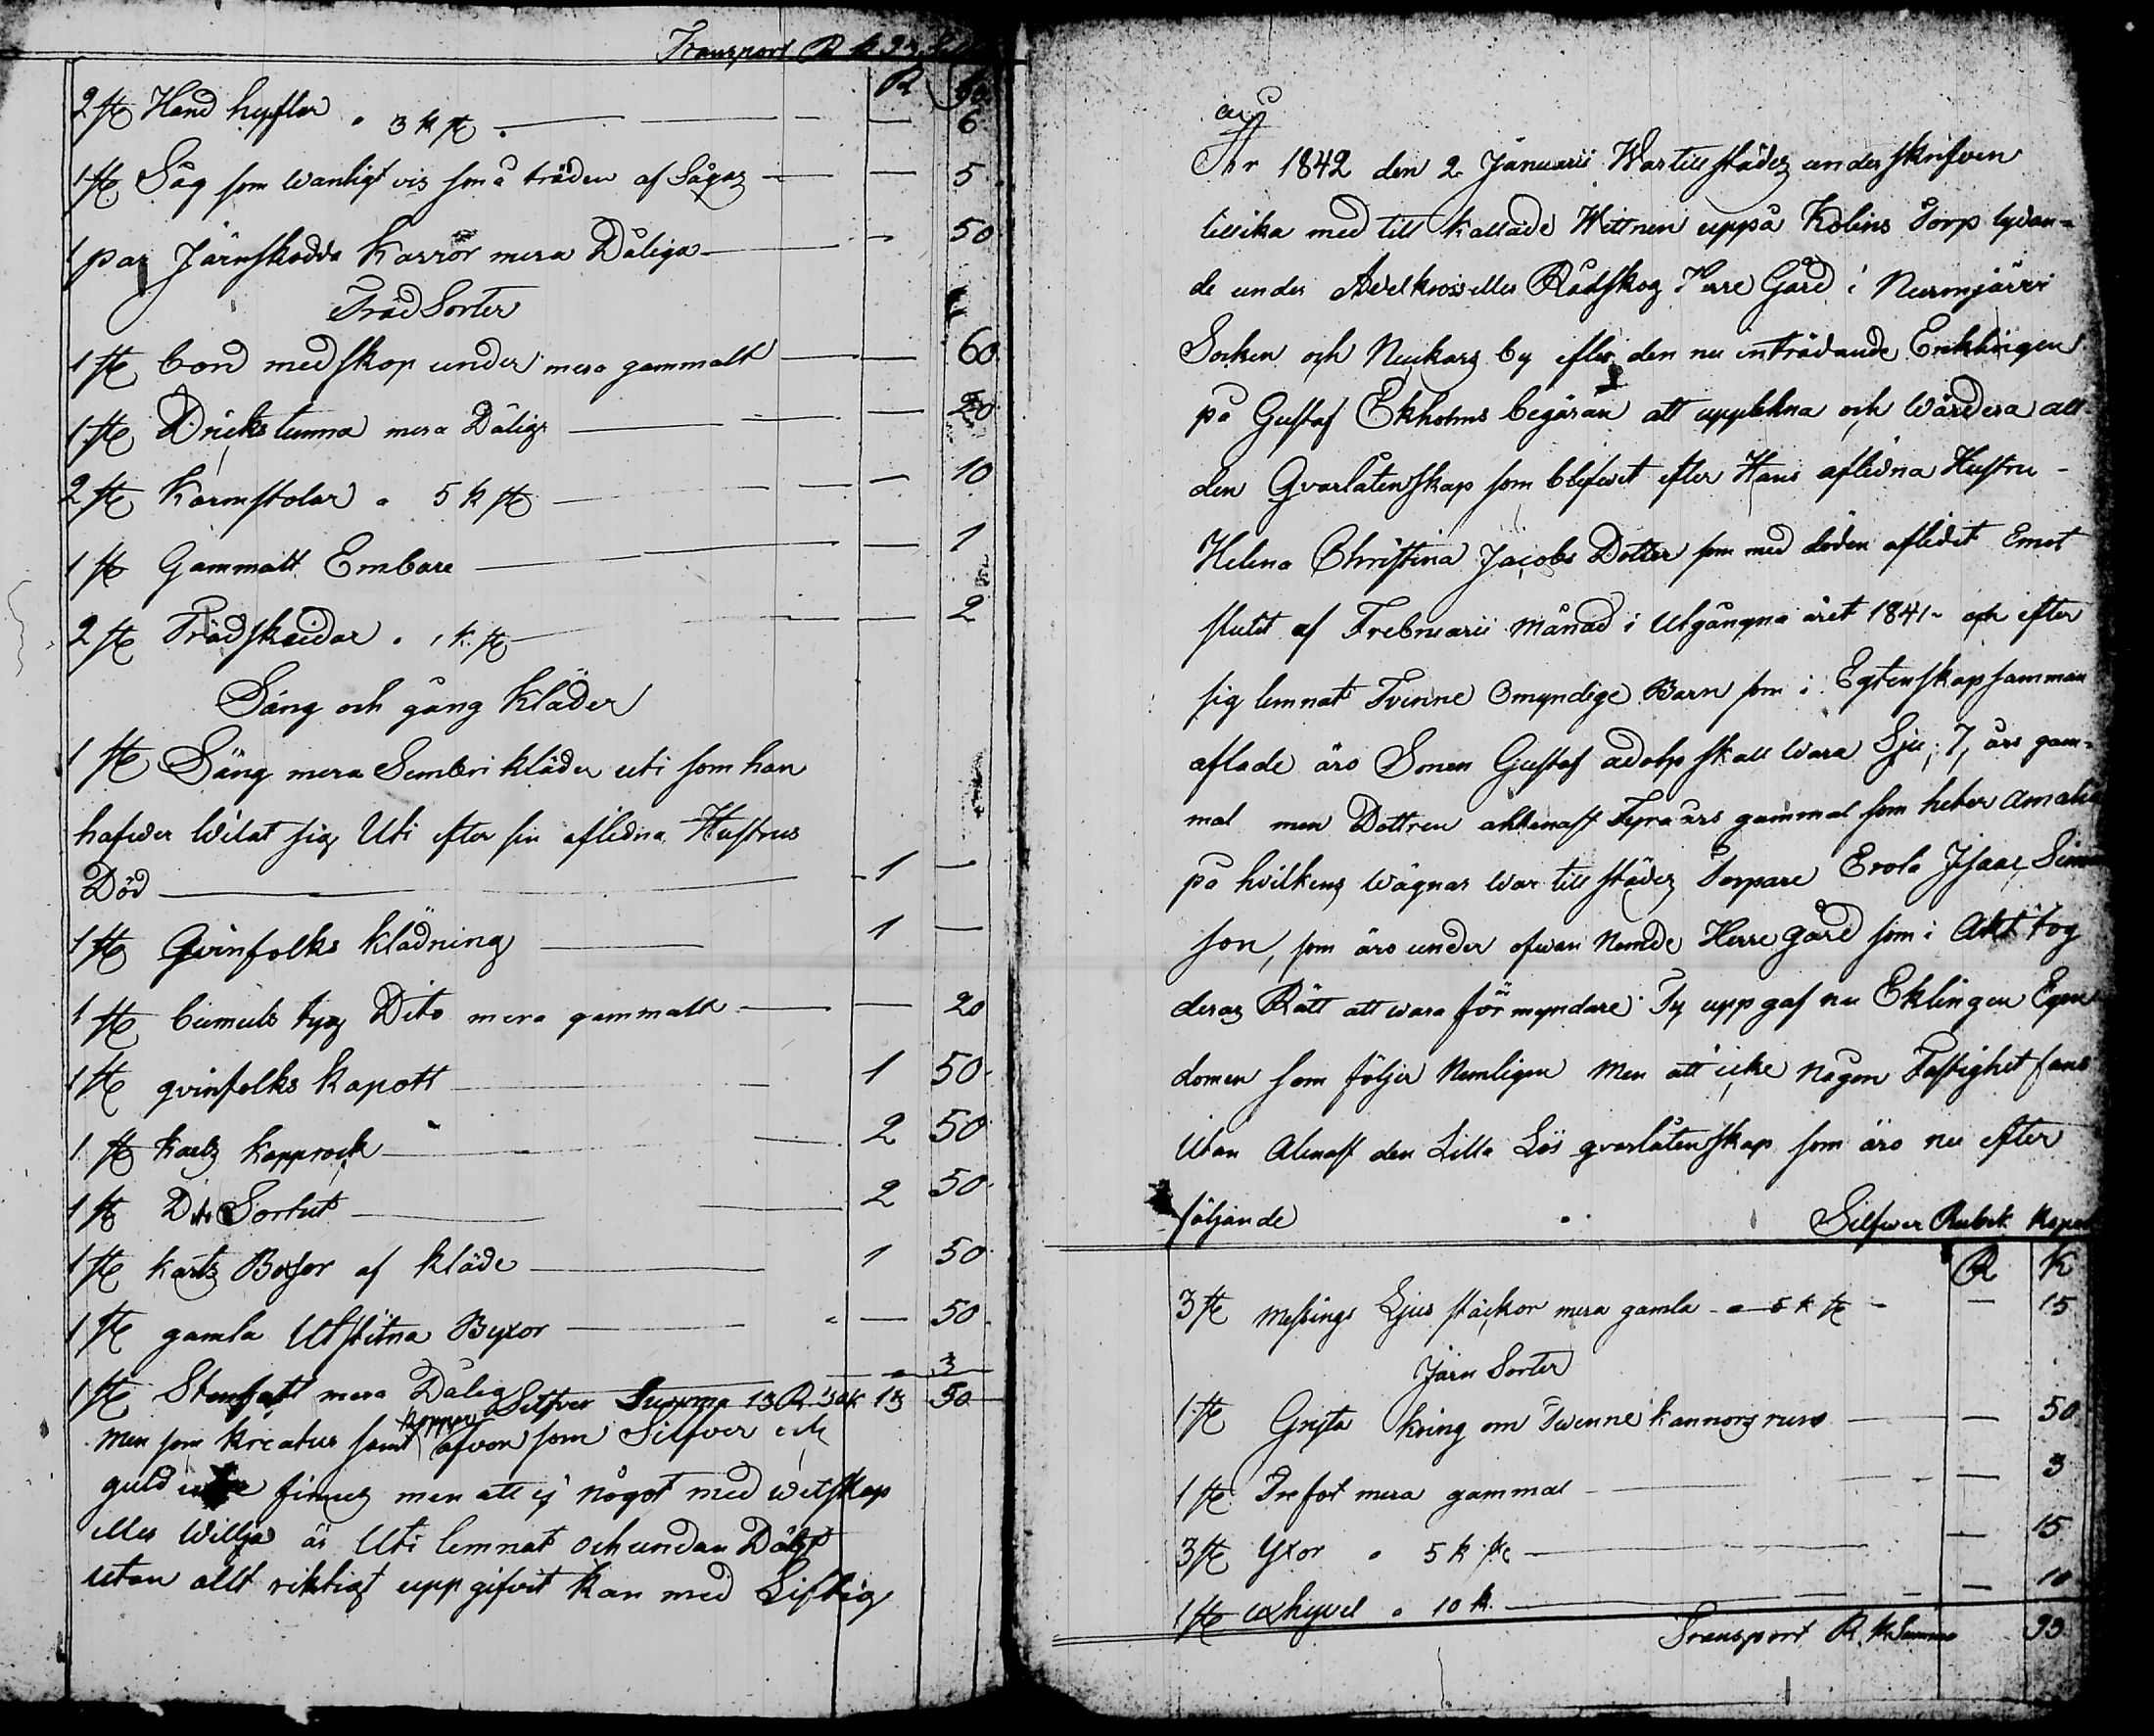 Transport R K 93
R
2 st Hand hyflar a 3 k st — — 6
1 st Såg som wanligt vis små träden af Sågas — — 5
1 par Järnskodda Kärror mera Dåliga — — 50
Träd Sorter
1 st bord med skop under mera gammalt — — 60
1 st Drickstunna mera Dålig — — 20
2 st Karmstolar a 5 k st — — 10
1 st Gammalt Embare — — 1
2 st Trädskeidar a 1 k. st — — 2
Säng och gång Kläder
1 st Säng mera Sembri kläder uti som han
hafwer wilat sig Uti efter sin aflidna Hustrus
Död — 1 —
1 st Qvinfolks klädning — 1 —
1 st bumuls tyg Dito mera gammalt — — 20
1 st qvinfolks kapott — 1 50
1 st karlz kapprock — 2 50
1 st Dito Sortut — 2 50
1 st karlz Boxsor af kläde — 1 50
1 st gamla Utslitna Byxor — — 50
1 st Stenfatt mera Dålig — 3
Silfver Summa 13 R 50 K 13 50
men som kreatur samt koppar äfvon som Silfver och
guld finnes men att ej något med wetskap
eller willja är Uti lemnat och undan Dölgt
utan allt riktigt uppgifvit kan med Liflig
År 1842 den 2 Januarii War till städes underskrifven
tillika med till kallade Wittnen uppå Kolins Torp lydan-
de under eller Rådskog Herre Gård i Nurmjärvi
Socken och Nuckars by efter den nu inträdande Enklingen
på Gustaf Ekholms begäran att upptekna och wärdera all
den Qvarlåtenskap som blifwit efter Hans aflidna Hustru
Helena Christina Jacobs Dotter som med döden aflidit Emot
slutit af Frebruarii månad i Utgångna året 1841 och efter
sig lemnat Tvenne Omyndige Barn som i Egtenskap samman
aflade äro Sonen Gustaf adolp skall wara Sju, 7, års gam-
mal men Dottren allenast Fyra års gammal som heter amalia
på hvilkens wägnar war till städes Torpare Erola Isaac Simon
son, som äro under ofwan nemde Herre gård som i Akt tog
deras Rätt att wara förmyndare Ty upp gaf nu Eklingen Egen
domen som följer Nemligen Men att icke någon Fastighet fans
Utan Alenast den Lilla Lös qvarlåtenskap som äro nu efter
följande Silfwer Rubel Kopek
R K
3 st Messings Ljus stackor mera gamla a 5 k st — — 15
Järn Sorter
1 st Gryta kring om Twenne kannors rum — — 50
1 st Trefot mera gammal — — 3
3 st Yxor a 5 k st — — 15
1 st oxhyvel a 10 k. — — 10
Transport R. K Summa 93